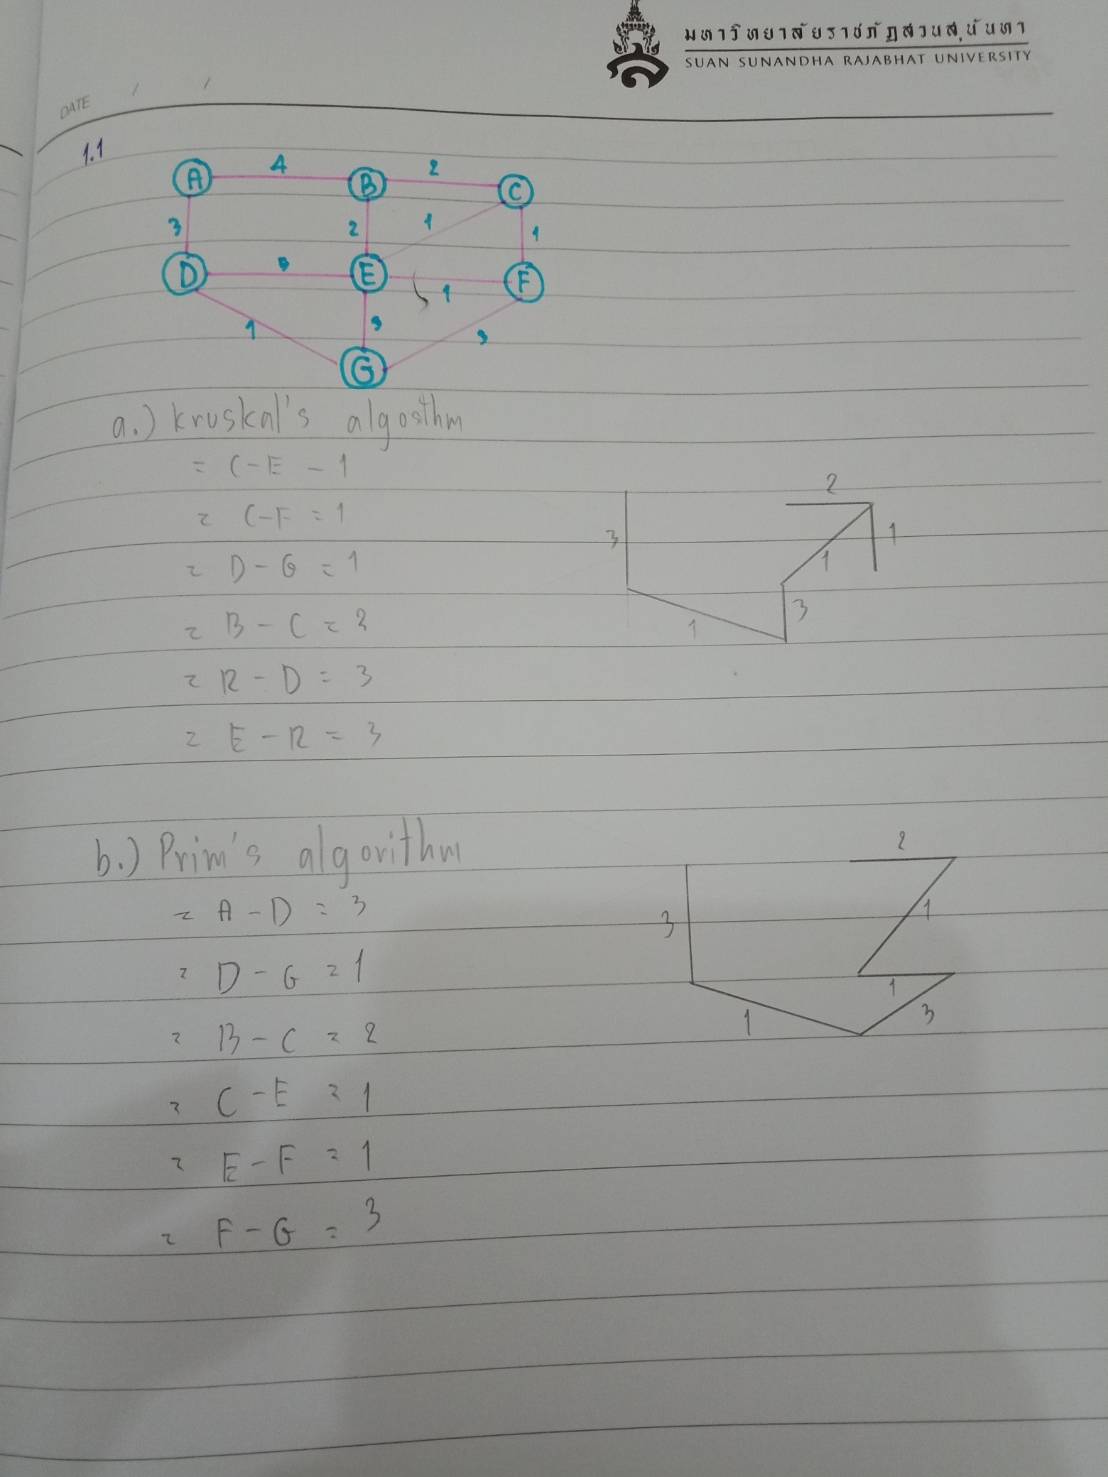 มหาวิทยาลัยราชภัฏสวนสุนันทา
SUAN SUNANDHA RAJABHAT UNIVERSITY
DATE / /
1.1
A 4 B 2 C
3 2 1 1
D E 1 F
1 3 3
G
a.) Kruskal's algosthm
= C-E - 1
= C-F = 1
= D-G = 1
= B-C = 2
= R-D = 3
= E-R = 3
2
3 1 1
1 3
b.) Prim's algorithm
= A-D = 3
= D-G = 1
= B-C = 2
= C-E = 1
= E-F = 1
= F-G = 3
2
3 1
1 1 3